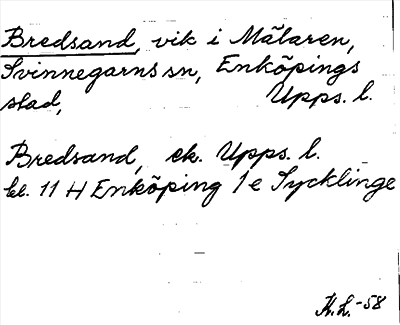 Bredsand, vik i Mälaren,
Svinnegarns sn, Enköpings
stad, Upps. l.
Bredsand, ek. Upps. l.
bl. 11 H Enköping 1 e Sycklinge
H.L. -58